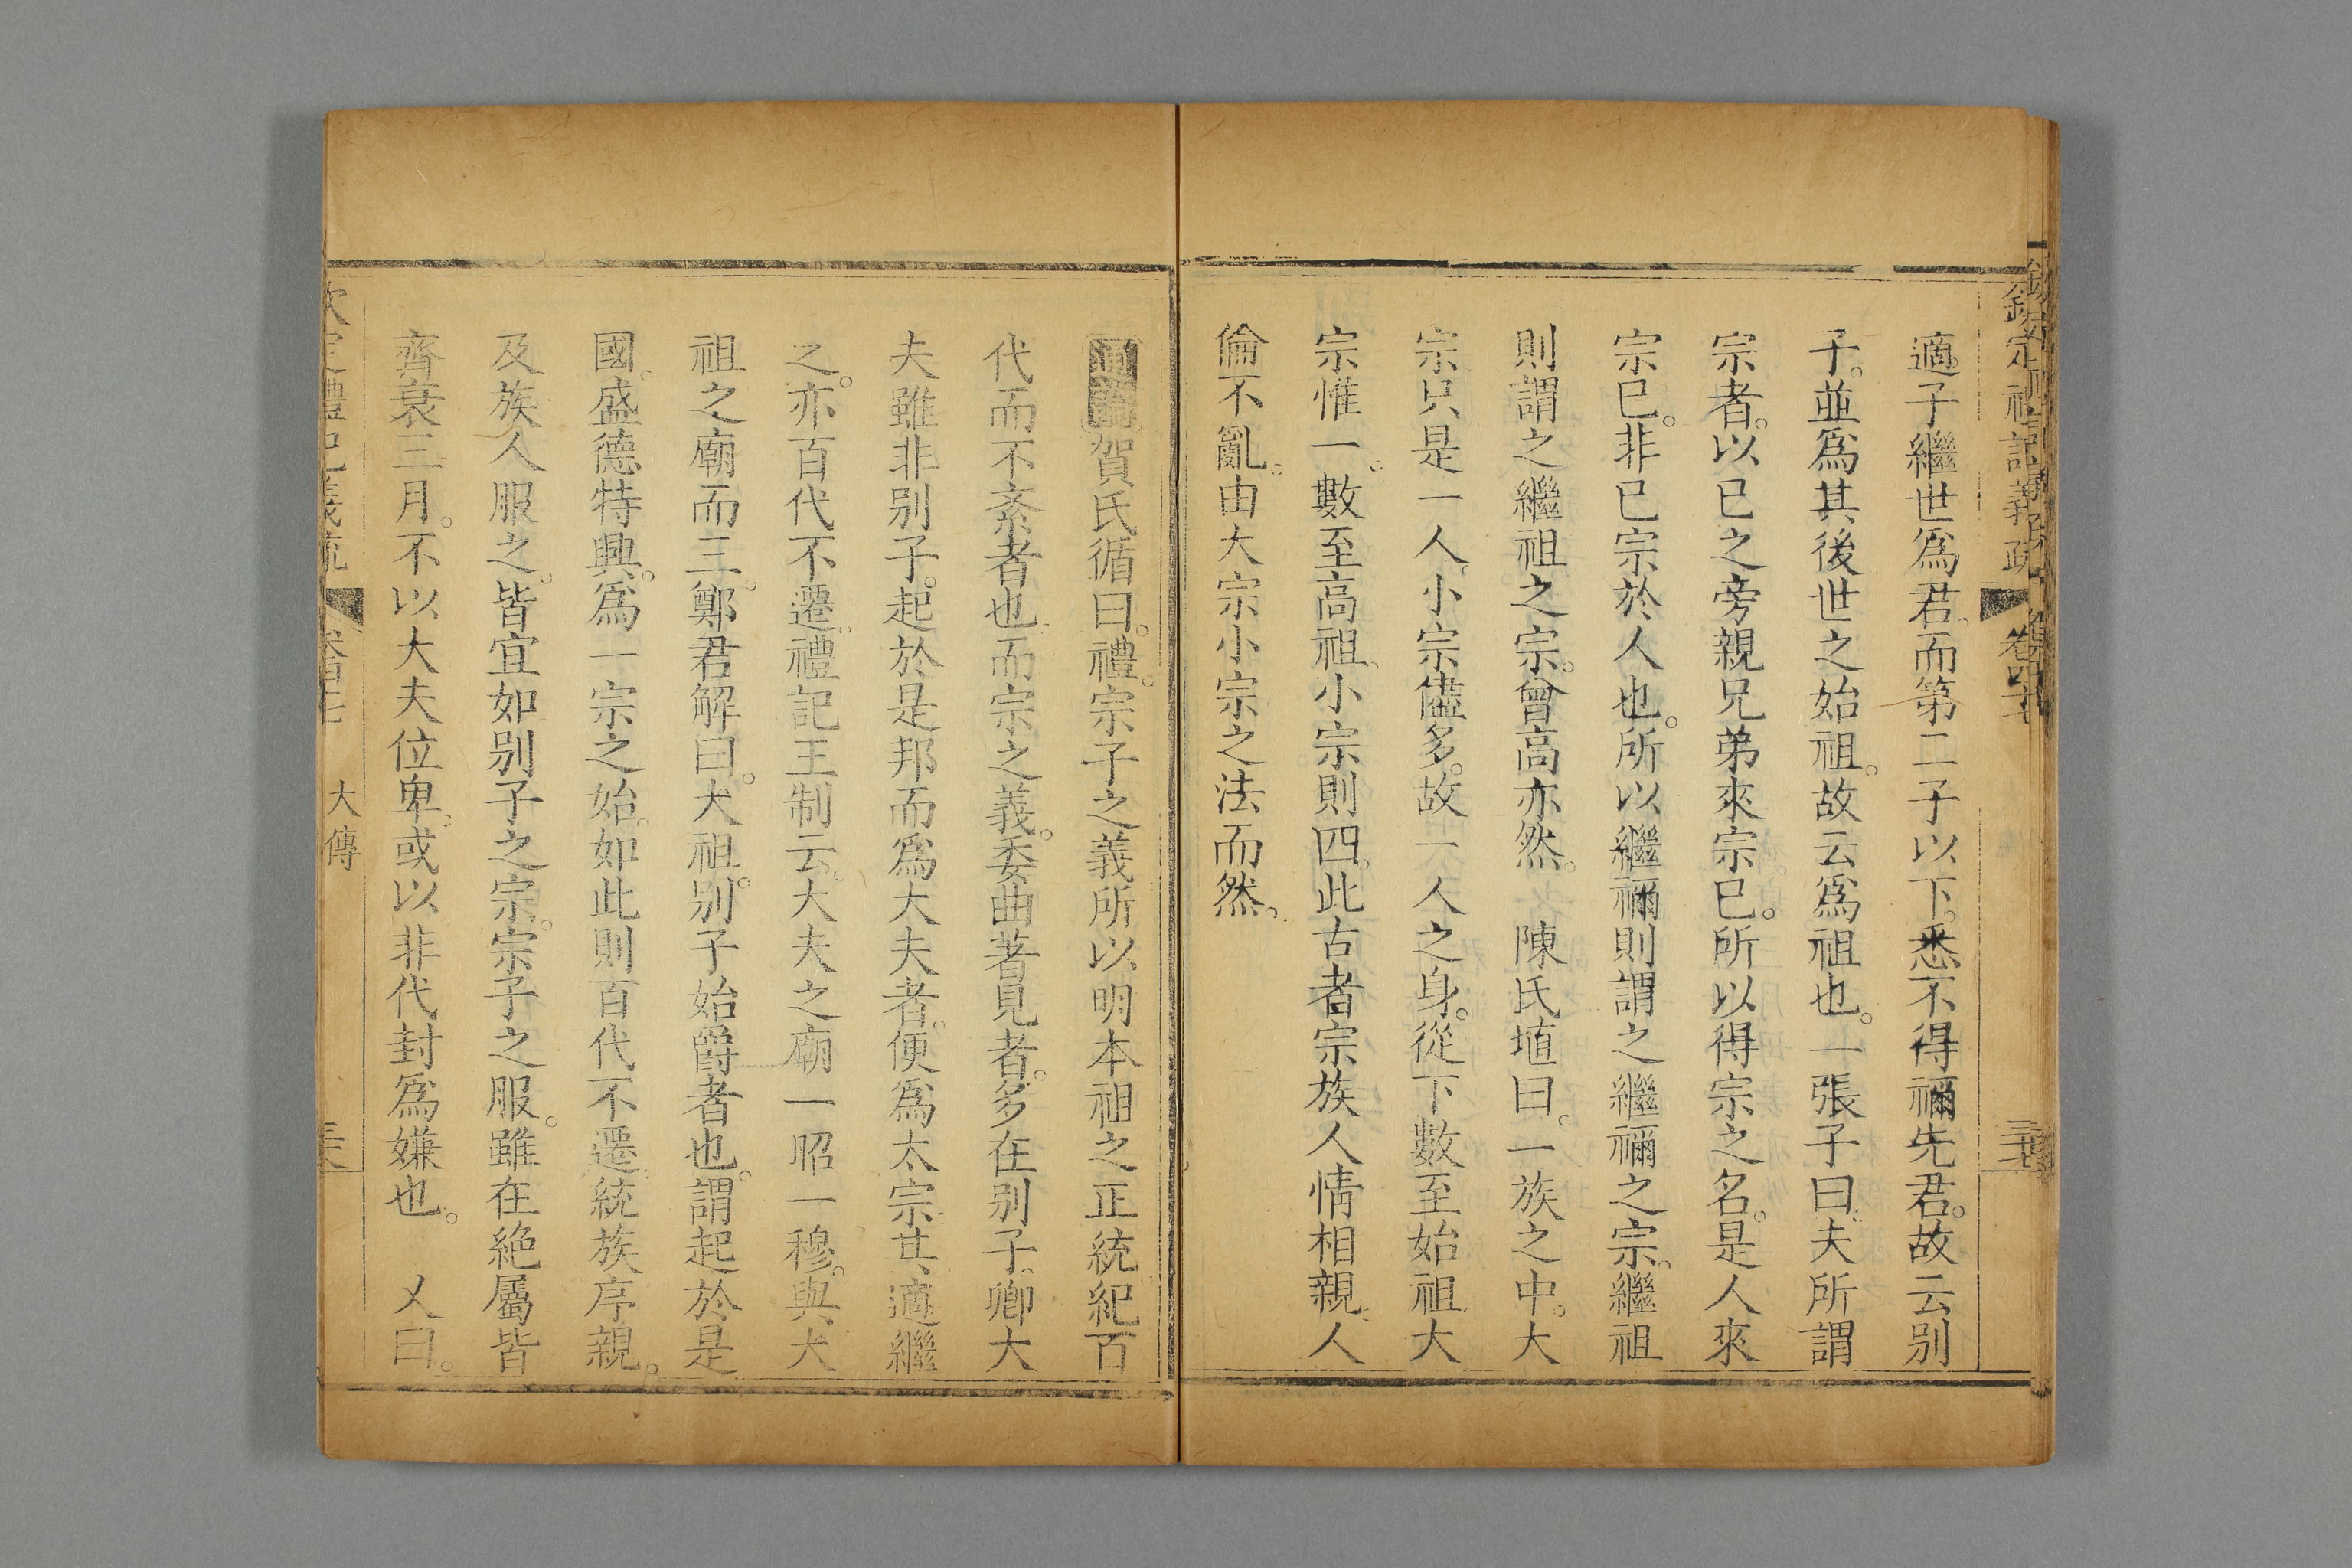 欽定禮記義疏 卷四十七
適子繼世爲君而第二子以下。悉不得禰先君。故云别
子。並爲其後世之始祖。故云爲祖也。 張子曰夫所謂
宗者。以已之旁親兄弟來宗已。所以得宗之名。是人來
宗已。非已宗於人也。所以繼禰則謂之繼禰之宗。繼祖
則謂之繼祖之宗。曾高亦然。 陳氏埴曰。一族之中。大
宗只是一人。小宗儘多。故一人之身。從下數至始祖大
宗惟一。數至高祖。小宗則四。此古者宗族人情相親。人
倫不亂。由大宗小宗之法而然。
通論賀氏循曰。禮。宗子之義所以明本祖之正統紀百
代而不紊者也而宗之義。委曲著見者。多在别子。卿大
夫雖非别子。起於是邦而爲大夫者。便爲太宗其適繼
之。亦百代不遷。禮記王制云。大夫之廟一昭一穆。與大
祖之廟而三。鄭君解曰。大祖。别子始爵者也。謂起於是
國。盛德特興。爲一宗之始。如此則百代不遷統族序親。
及族人服之。皆宜如别子之宗。宗子之服。雖在絶屬皆
齊衰三月。不以大夫位卑。或以非代封爲嫌也。 又曰。
大傳